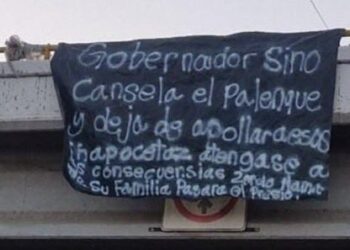 Gobernador Sino
Cansela el Palenque
y deja de apollar a esos
chapocetas atengase a
las consecuensias 2ando Manta
Su Familia Pagara el Presio.